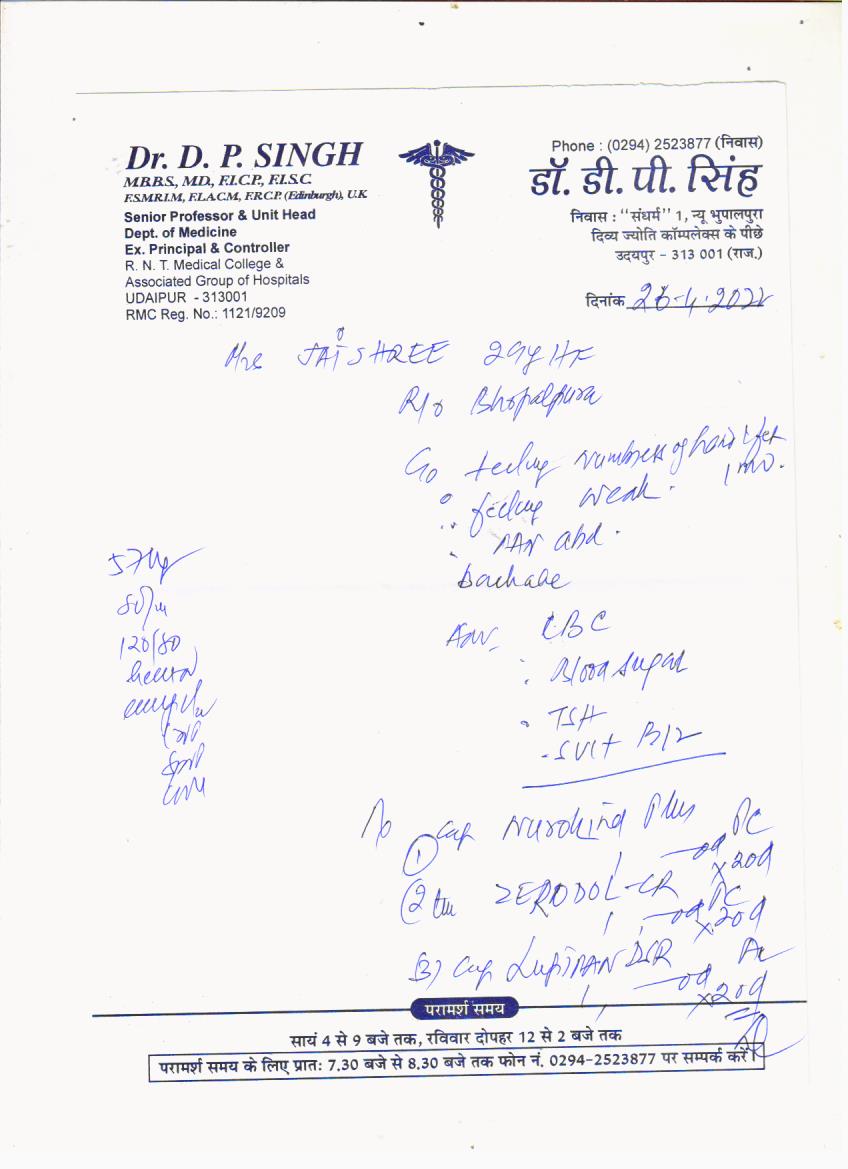 Dr. D. P. SINGH
M.B.B.S., M.D., F.I.C.P., F.I.S.C
F.S.M.R.I.M, F.I.A.C.M, F.R.C.P. (Edinburgh), U.K
Senior Professor & Unit Head
Dept. of Medicine
Ex. Principal & Controller
R. N. T. Medical College &
Associated Group of Hospitals
UDAIPUR - 313001
RMC Reg. No.: 1121/9209
Phone : (0294) 2523877 (निवास)
डॉ. डी. पी. सिंह
निवास : "संधर्म" 1, न्यू भुपालपुरा
दिव्य ज्योति कॉम्पलेक्स के पीछे
उदयपुर - 313 001 (राज.)
दिनांक 26-4-2022
Mrs JAISHREE 29y
R/o Bhopalpura
C/o feeling Numbness of hand & feet 1 mo.
feeling weak
Pain abd.
Backache
57 kg
80/m
120/80
Adv CBC
Blood Sugar
TSH
S Vit B12
① Cap Nurokind Plus od PC x 20d
② ZERODOL-CR od PC x 20d
3) Cap LUPIPAN DSR od x 20d
परामर्श समय
सायं 4 से 9 बजे तक, रविवार दोपहर 12 से 2 बजे तक
परामर्श समय के लिए प्रातः 7.30 बजे से 8.30 बजे तक फोन नं. 0294-2523877 पर सम्पर्क करें।